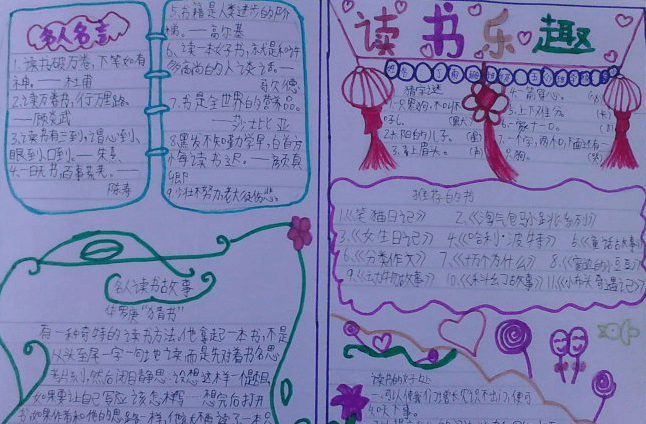 名人名言
1.读书破万卷,下笔如有
神。——杜甫
2.读万卷书,行万里路。
——顾炎武
3.读书有三到,谓心到、
眼到、口到。——朱熹
4.一日无书,百事荒芜。——
陈寿
5.书籍是人类进步的阶
梯。——高尔基
6.读一本好书,就是和许
多高尚的人谈话。——
歌德
7.书是全世界的营养品。
——莎士比亚
8.黑发不知勤学早,白首方
悔读书迟。——颜真
卿
9.少壮不努力,老大徒伤悲。
读书乐趣
猜字谜
1.一只黑狗,不叫
2.太阳的儿子。
3.上下难分。
推荐的书
1.《笑猫日记》 2.《淘气包马小跳系列》
3.《女生日记》 4.《哈利·波特》 5.《童话故事》
6.《分类作文》 7.《十万个为什么》 8.《窗边的小豆豆》
9.《故事》 10.《科幻故事》 11.《小布头奇遇记》
名人读书故事
华罗庚“猜书”
有一种奇特的读书方法。他拿起一本书,不是
从头至尾一字一句地读,而是先对着书名思
考一会,然后闭目静思。设想这样一个题目,
如果要让自己写应该怎样写……想完后打开
书,如果作者和他的思路一样,他就不再读了。一本
读书的好处
一、可以使我们
知天下事。